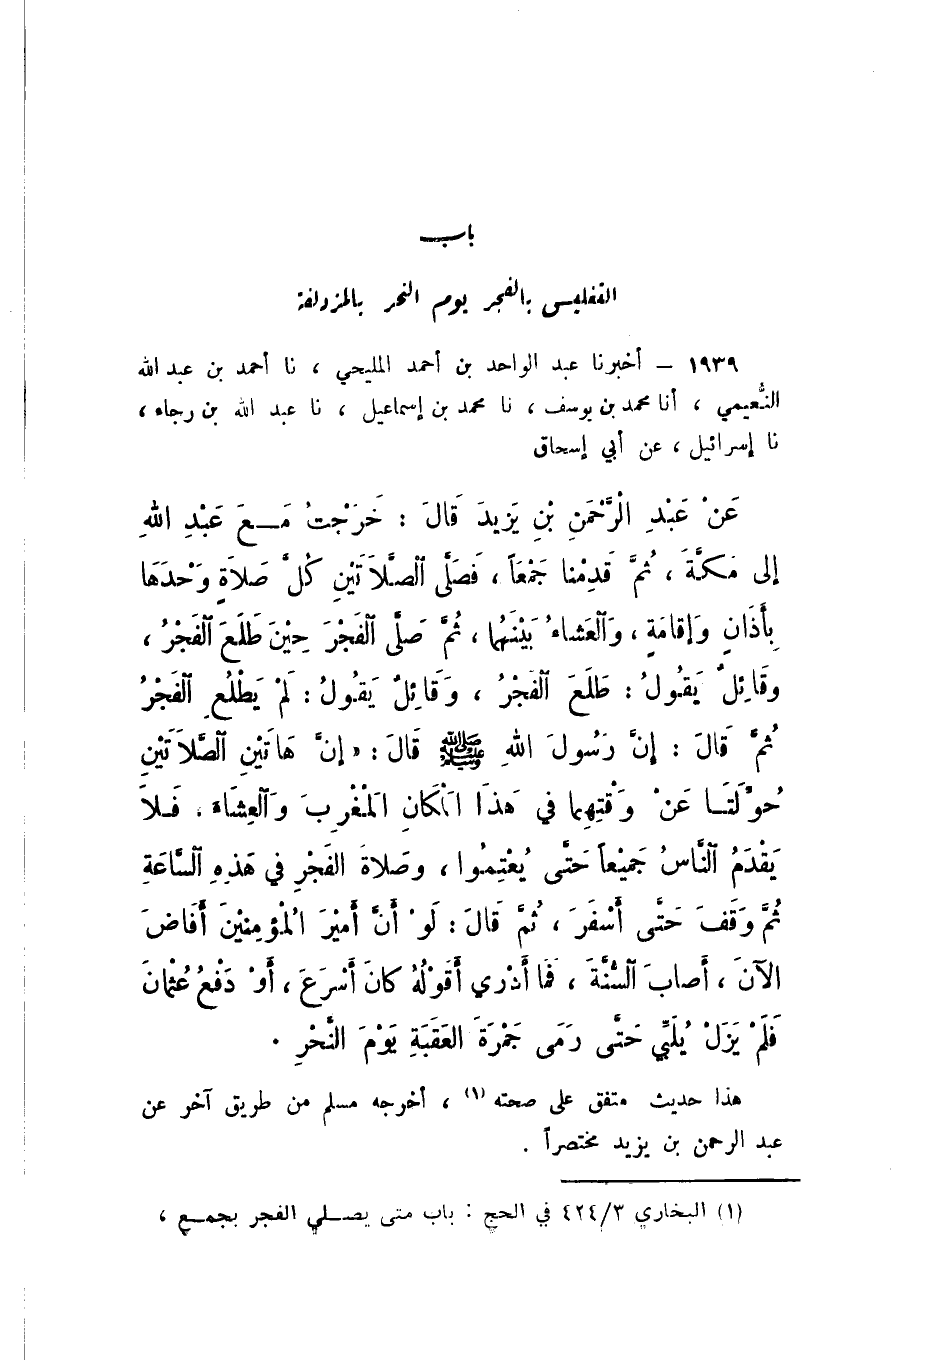 باب
التغليس بالفجر يوم النحر بالمزدلفة
١٩٣٩ – أخبرنا عبد الواحد بن أحمد المليحي ، نا أحمد بن عبد الله
النُّعيمي ، أنا محمد بن يوسف ، نا محمد بن إسماعيل ، نا عبد الله بن رجاء ،
نا إسرائيل ، عن أبي إسحاق
عَنْ عَبْدِ الرَّحْمَنِ بْنِ يَزِيدَ قَالَ : خَرَجْتُ مَـعَ عَبْدِ اللهِ
إلى مَكَّةَ ، ثُمَّ قَدِمْنا جَمْعَاً ، فَصَلَّى ٱلصَّلاَتَيْنِ كُلَّ صَلاَةٍ وَحْدَهَا
بِأَذَانٍ وَإقامَةٍ ، وَٱلعَشاءُ بَيْنَهُما ، ثُمَّ صَلَّى ٱلفَجْرَ حِيْنَ طَلَعَ ٱلفَجْرُ ،
وقَائِلٌ يَقُولُ : طَلَعَ ٱلفَجْرُ ، وَقَائِلٌ يَقُولُ : لَمْ يَطْلُعِ ٱلفَجْرُ
ثُمَّ قَالَ : إنَّ رَسُولَ اللهِ ﷺ قَالَ : « إنَّ هَاتَيْنِ ٱلصَّلاَتَيْنِ
حُوِّلَتَـا عَنْ وَقْتِهِما في هَذَا ٱلمَكَانِ ٱلمَغْرِبَ وَٱلعِشَاءَ ، فَـلاَ
يَقْدَمُ ٱلنَّاسُ جَمِيْعاً حَتَّى يُعْتِمُوا ، وصَلاةَ الفَجْرِ في هَذِهِ ٱلسَّاعَةِ
ثُمَّ وَقَفَ حَتَّى أَسْفَرَ ، ثُمَّ قَالَ : لَوْ أَنَّ أَمِيْرَ المُؤْمِنِيْنَ أَفَاضَ
الآنَ ، أَصابَ ٱلسُّنَّةَ ، فَمَا أَدْري أَقَوْلُهُ كانَ أَسْرَعَ ، أَوْ دَفْعُ عُثْمانَ
فَلَمْ يَزَلْ يُلَبِّي حَتَّى رَمَى جَمْرَةَ العَقَبَةِ يَوْمَ النَّحْرِ .
هذا حديث متفق على صحته (١) ، أخرجه مسلم من طريق آخر عن
عبد الرحمن بن يزيد مختصراً .
(١) البخاري ٤٢٤/٣ في الحج : باب متى يصـلي الفجر بجمـع ،